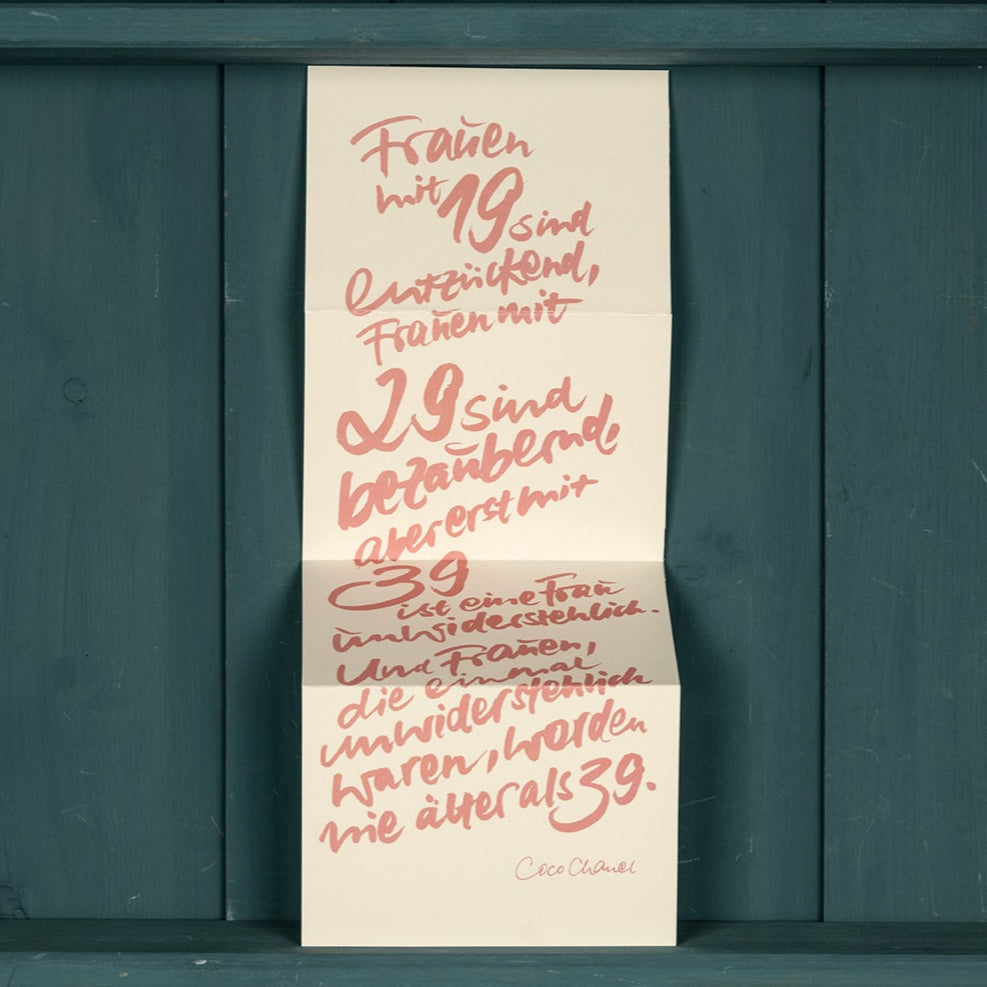 Frauen
mit 19 sind
entzückend,
Frauen mit
29 sind
bezaubernd,
aber erst mit
39
ist eine Frau
unwiderstehlich.
Und Frauen,
die einmal
unwiderstehlich
waren, werden
nie älter als 39.
Coco Chanel